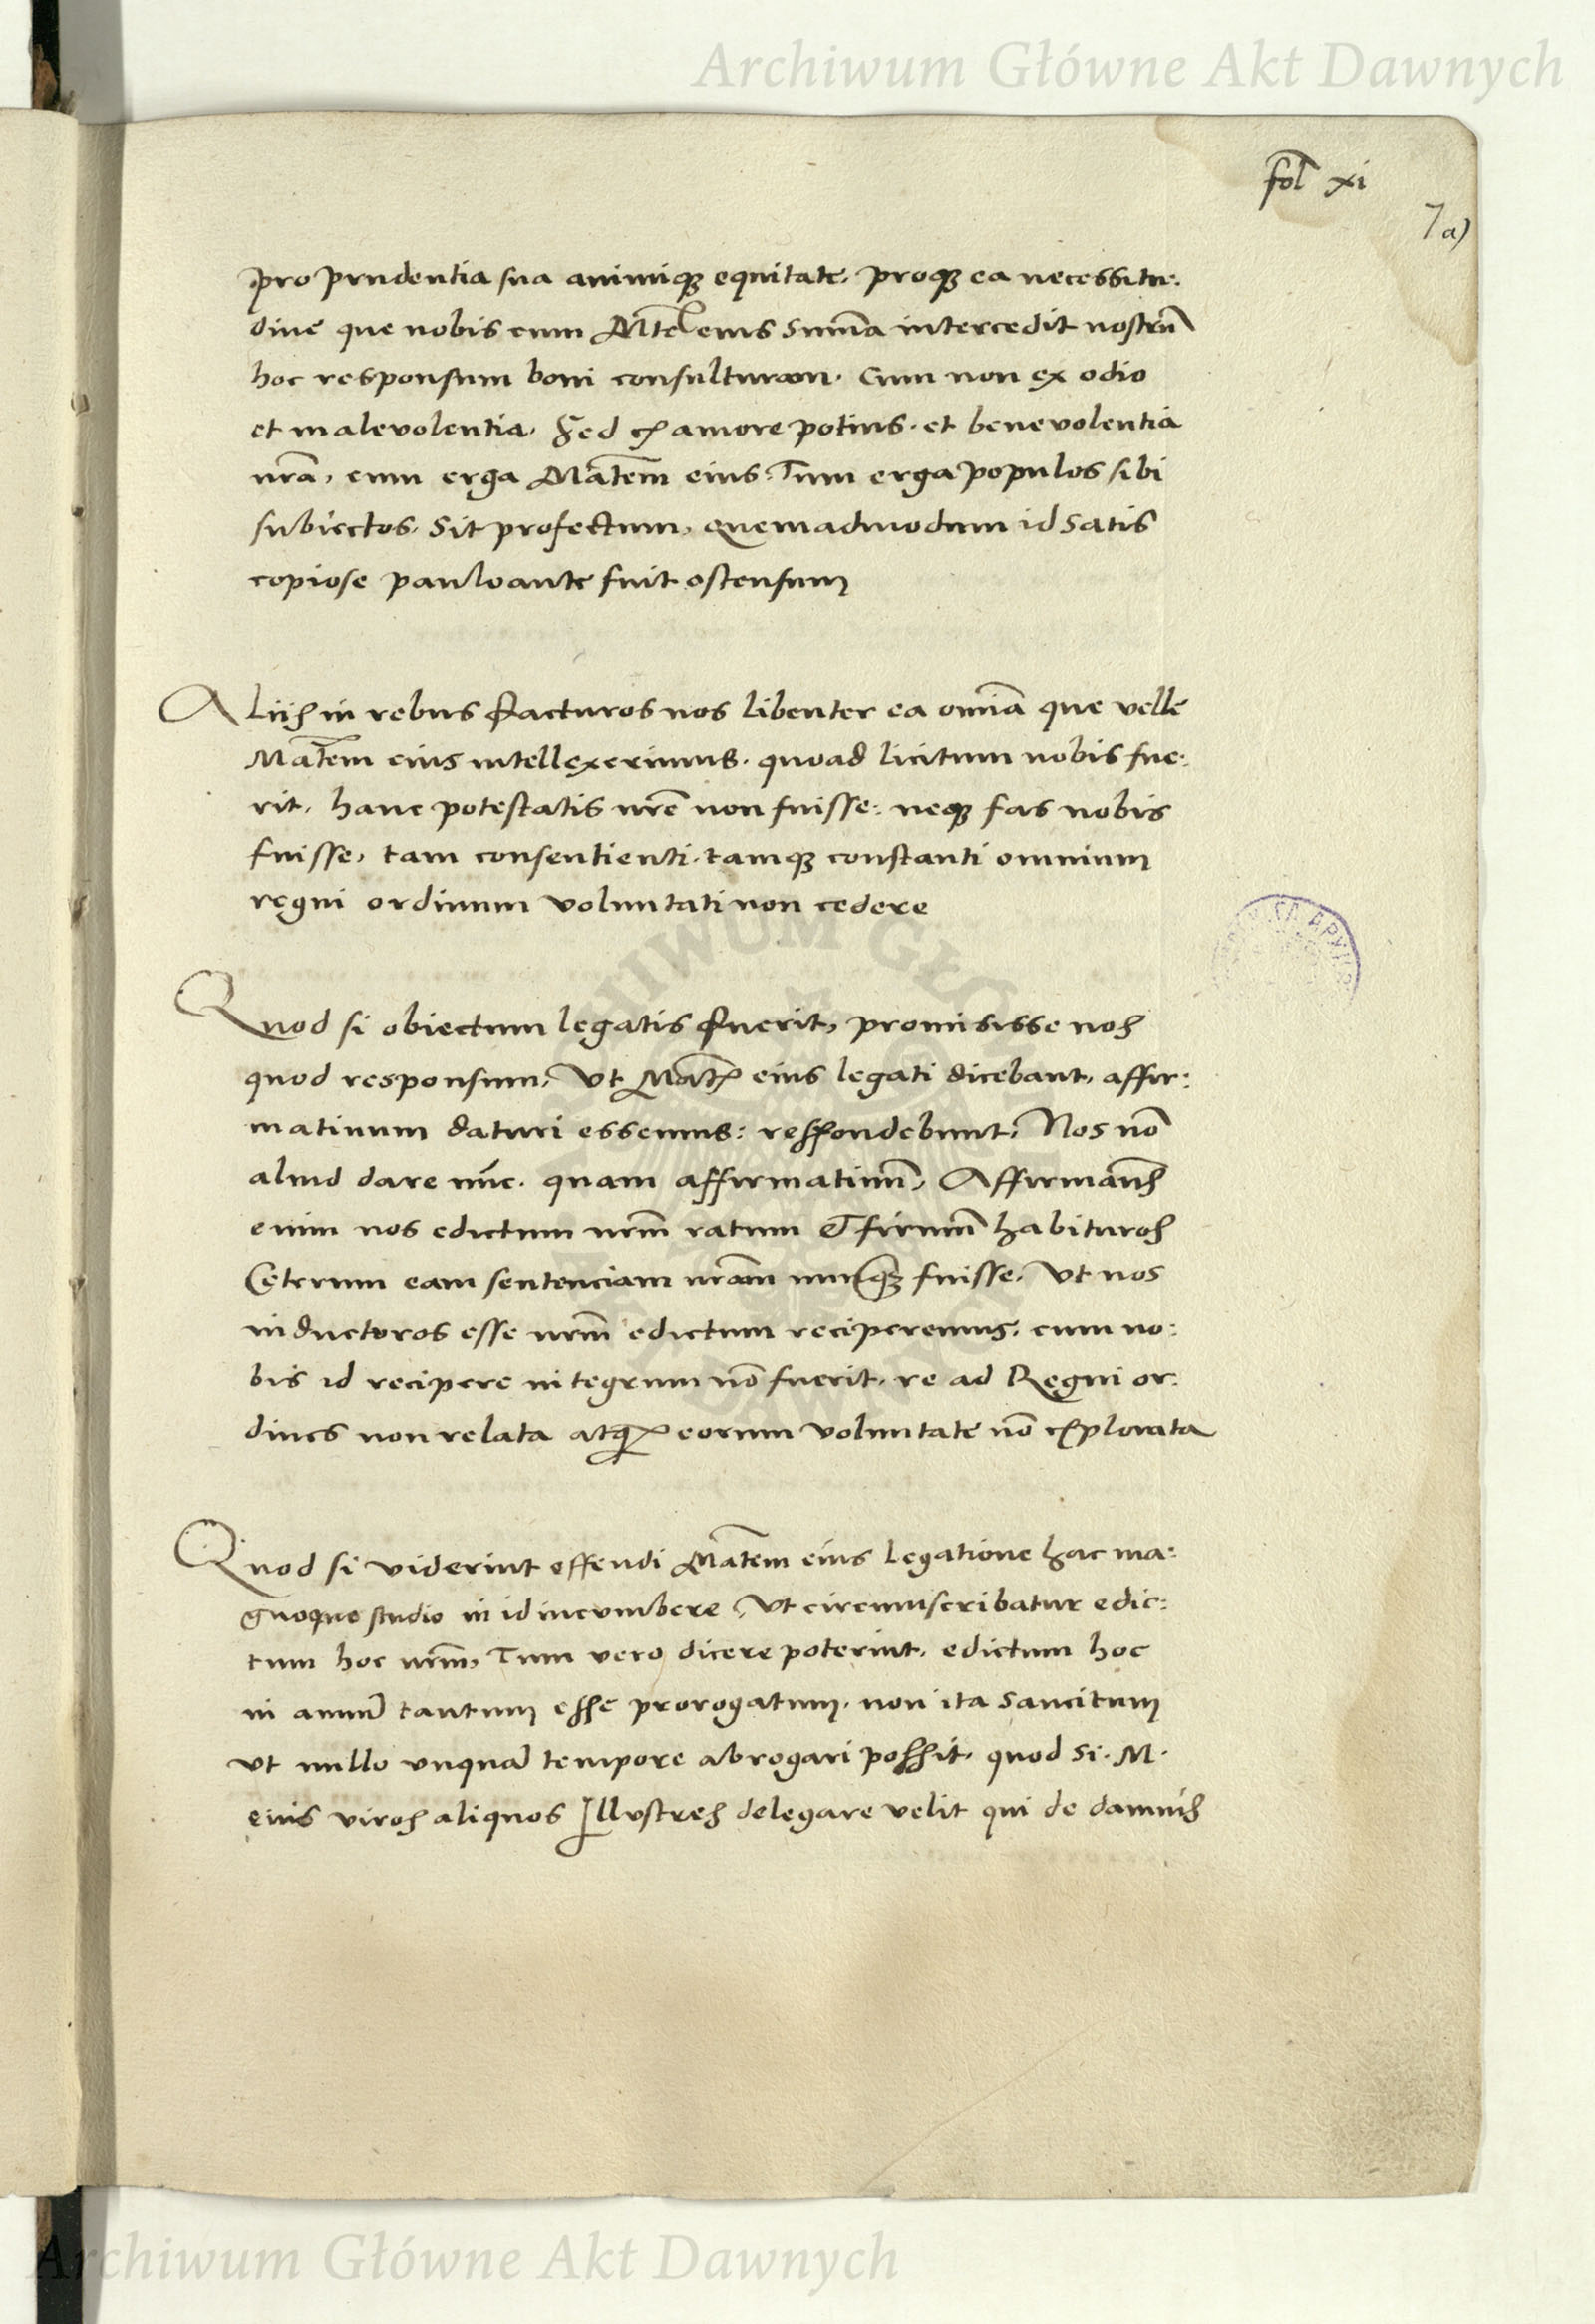 Archiwum Główne Akt Dawnych
fol xi
7a)
pro prudentia sua animiqꝫ equitate, proqꝫ ea necessitu:
dine que nobis cum Mte eius summa intercedit nostrū
hoc responsum boni consulturam. Cum non ex odio
et malevolentia. Sed ex amore potius. et benevolentia
nrā, cum erga Matem eius: Tum erga populos sibi
subiectos. Sit profectum, quemadmodum id satis
copiose pauloante fuit ostensum
Aliis in rebus facturos nos libenter ea omnia que velle
Matem eius intellexerimus. quoad licitum nobis fue:
rit. hanc potestatis nrē non fuisse: neqꝫ fas nobis
fuisse, tam consentienti. tamqꝫ constanti omnium
regni ordinum voluntati non cedere
Quod si obiectum legatis fuerit, promisisse nos
quod responsum, Ut Matis eius legati dicebant, affir:
mativum daturi essemus: respondebunt, Nos nō
aliud dare nūc. quam affirmativū, Affirmam̄s
enim nos edictum nrm̄ ratum Et firmū habituros
Ceterum eam sentenciam nram̄ nunqꝫ fuisse. Ut nos
inducturos esse nrm̄ edictum reciperemus, cum no:
bis id recipere integrum nō fuerit. re ad Regni or:
dines non relata atqꝫ eorum voluntate nō explorata
Quod si viderint offendi Matem eius legatione hac ma:
gnoque studio in id incumbere, Ut circumscribatur edic:
tum hoc nrm̄, Tum vero dicere poterint. edictum hoc
in annū tantum esse prorogatum. non ita sancitum
ut nullo unquā tempore abrogari possit. quod si. M.
eius viros aliquos Illustres delegare velit qui de damnis
Archiwum Główne Akt Dawnych